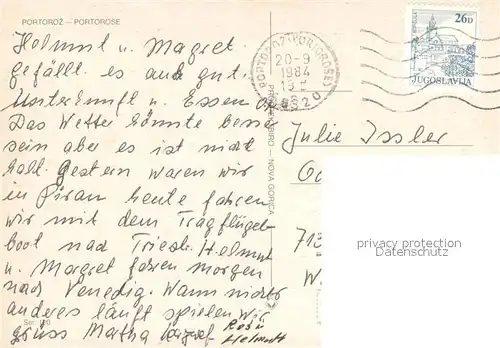 PORTOROŽ – PORTOROSE
Holmut u. Magret.
Gefällt es auch gut.
Unterkunft u. Essen
Das Wetter könnte besse
sein aber es ist nicht
kalt. Gestern waren wir
in Piran heute fahren
wir mit dem Tragflügel-
boot nad Triest. Helmut
u. Margret fahren morgen
nad Venedig. Wann nichts
anderes läuft spielen wir
grüss Martha
Rosi u
Helmutt
Ser. 120
PORTOROŽ (PORTOROSE)
20-9
1984
26D
JUGOSLAVIJA
NOVA GORICA
Julie Issler
713
privacy protection
Datenschutz